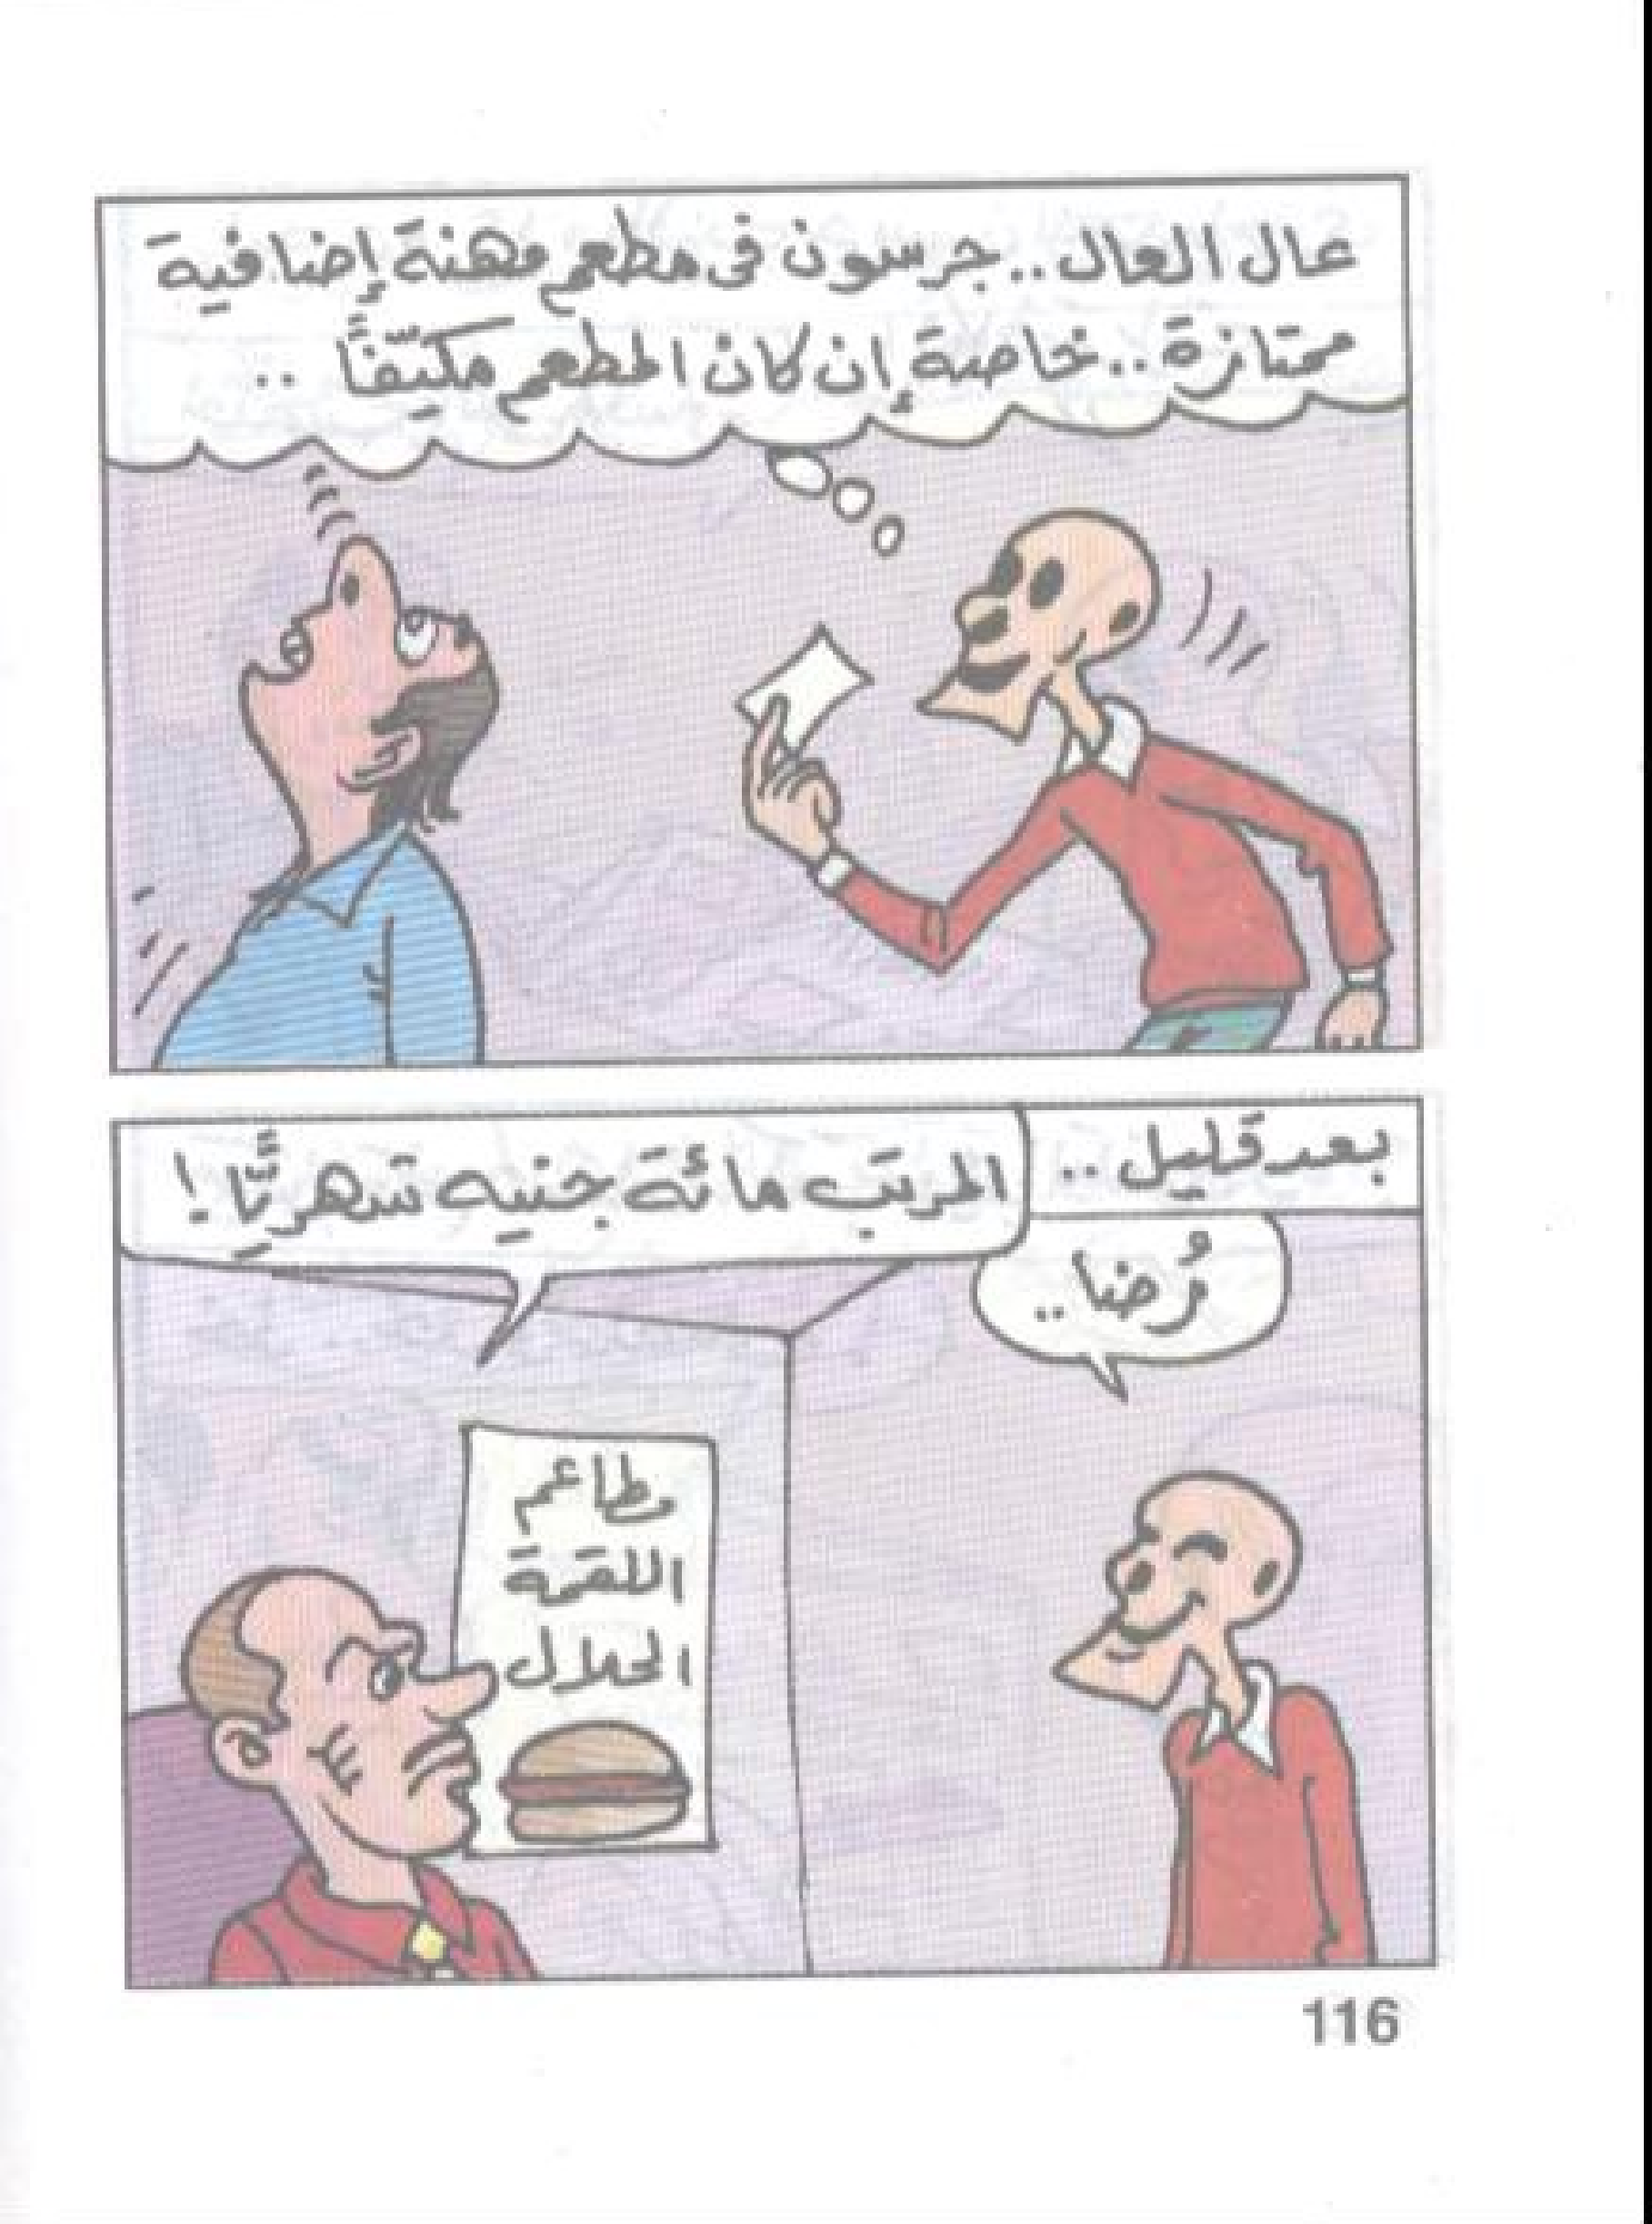 عال العال.. جرسون فى مطعم مهنة إضافية
ممتازة.. خاصة إن كان المطعم مكيّفًا..
بعد قليل..
المرتب مائة جنيه شهريًّا!
رُضا..
مطاعم
اللقمة
الحلال
116